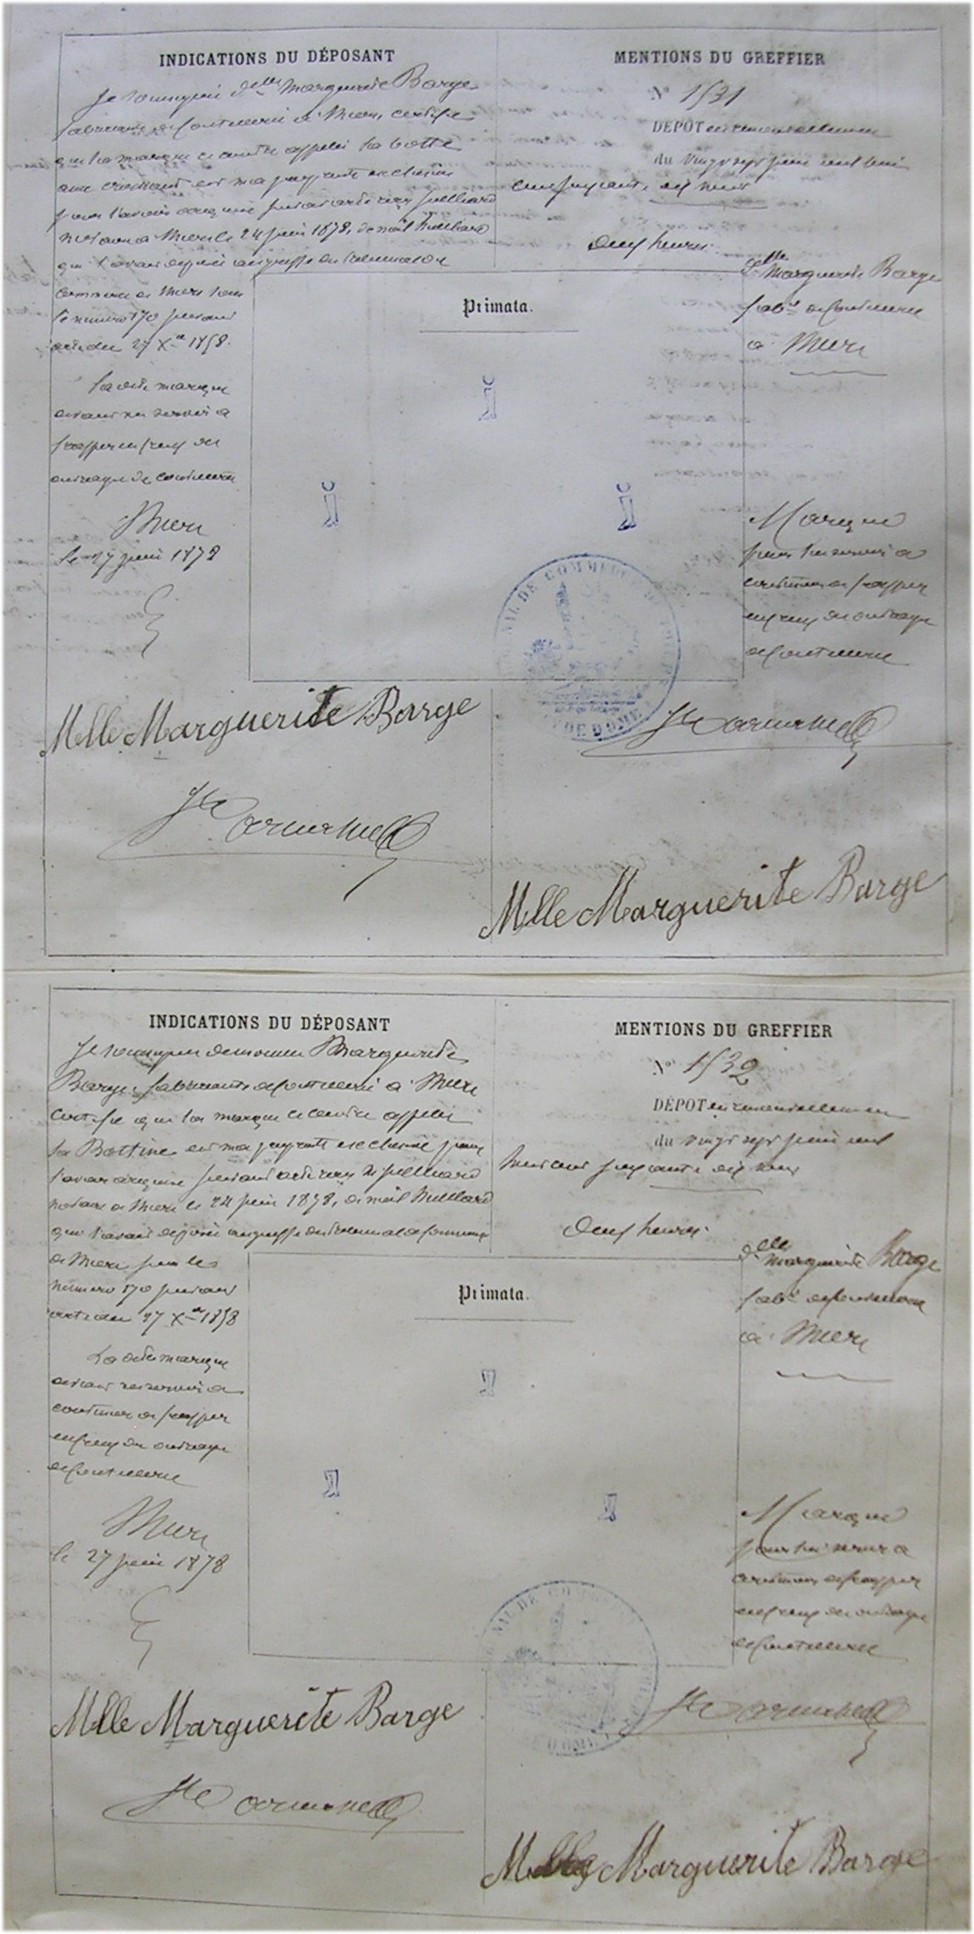 INDICATIONS DU DÉPOSANT
Je soussigné delle Marguerite Barge
fabricante de coutellerie à Thiers certifie
que la marque ci contre appelée la botte
au croissant est ma propriété exclusive
pour l'avoir acquise suivant acte reçu
notaire à Thiers le 24 juin 1878, de
qui l'avait déposée au greffe du tribunal de
commerce de Thiers sous
le numéro 170 suivant
acte du 27 Xbre 1858.
La dite marque
devant me servir à
frapper en creux des
ouvrages de coutellerie
Thiers
le 27 juin 1878
Mlle Marguerite Barge
MENTIONS DU GREFFIER
N° 1531
DÉPOT en renouvellement
du vingt sept juin mil huit
cent soixante dix huit
deux heures.
Delle Marguerite Barge
fabte de coutellerie
à Thiers
Primata.
Marque
pour lui servir à
continuer de frapper
en creux des ouvrages
de coutellerie
TRIBUNAL DE COMMERCE DE THIERS
PUY DE DOME
Mlle Marguerite Barge
INDICATIONS DU DÉPOSANT
Je soussignée demoiselle Marguerite
Barge, fabricante de coutellerie à Thiers
certifie que la marque ci contre appelée
la Bottine est ma propriété exclusive pour
l'avoir acquise suivant acte reçu
notaire à Thiers le 24 juin 1878, de
qui l'avait déposée au greffe du tribunal de commerce
de Thiers sous le
numéro 170 suivant
acte du 27 Xbre 1858
La dite marque
devant me servir à
continuer de frapper
en creux des ouvrages
de coutellerie
Thiers
le 27 juin 1878
Mlle Marguerite Barge
MENTIONS DU GREFFIER
No 1532
DÉPOT en renouvellement
du vingt sept juin mil
huit cent soixante dix huit
deux heures.
Delle Marguerite Barge
fabte de coutellerie
à Thiers
Primata.
Marque
pour lui servir à
continuer de frapper
en creux des ouvrages
de coutellerie
Mlle Marguerite Barge